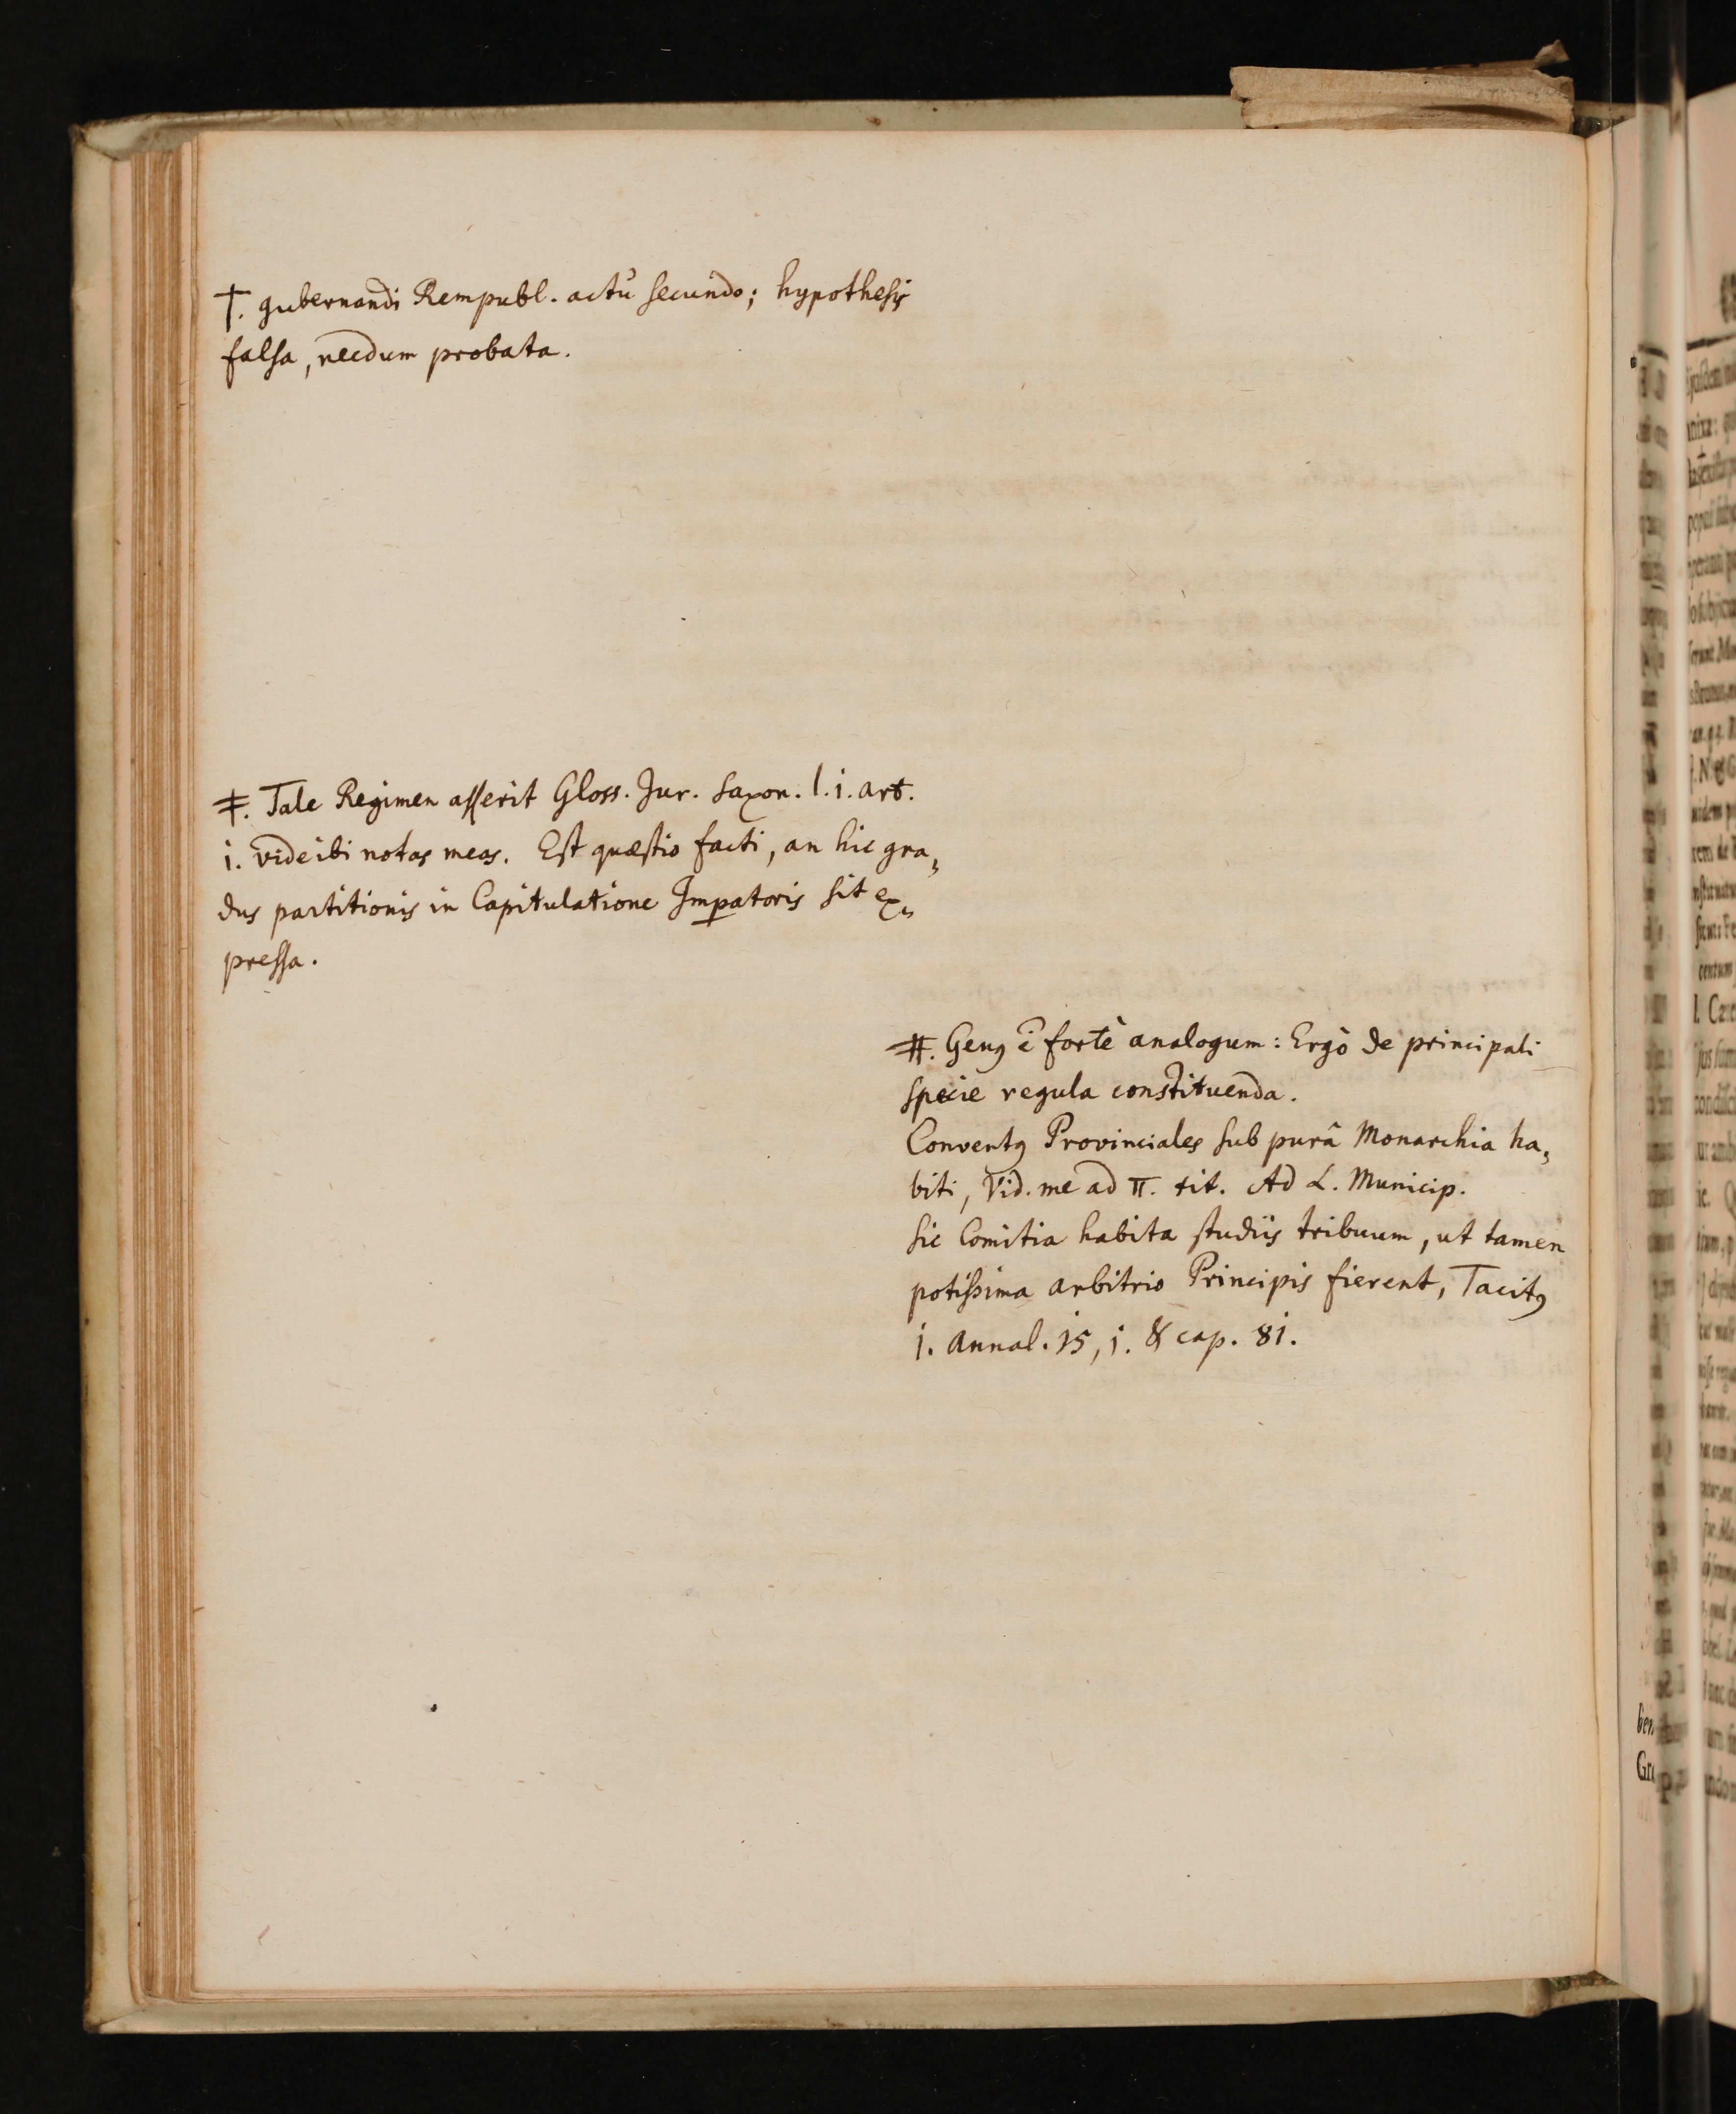 †. gubernandi Rempubl. actu secundo; hypothesis
falsa, necdum probata.
‡. Tale Regimen asserit Gloss. Jur. Saxon. l. i. art.
i. vide ibi notas meas. Est quæstio facti, an hic gra⸗
dus partitionis in Capitulatione Imꝑatoris sit ex⸗
pressa.
⧺. Genꝰ ē fortè analogum: Ergò de principali
specie regula constituenda.
Conventꝰ Provinciales sub purâ Monarchia ha⸗
biti, Vid. me ad π. tit. Ad L. Municip.
Sic Comitia habita studiis tribuum, ut tamen
potissima arbitrio Principis fierent, Tacitꝰ
i. Annal. 15, i. & cap. 81.
ben
Gra